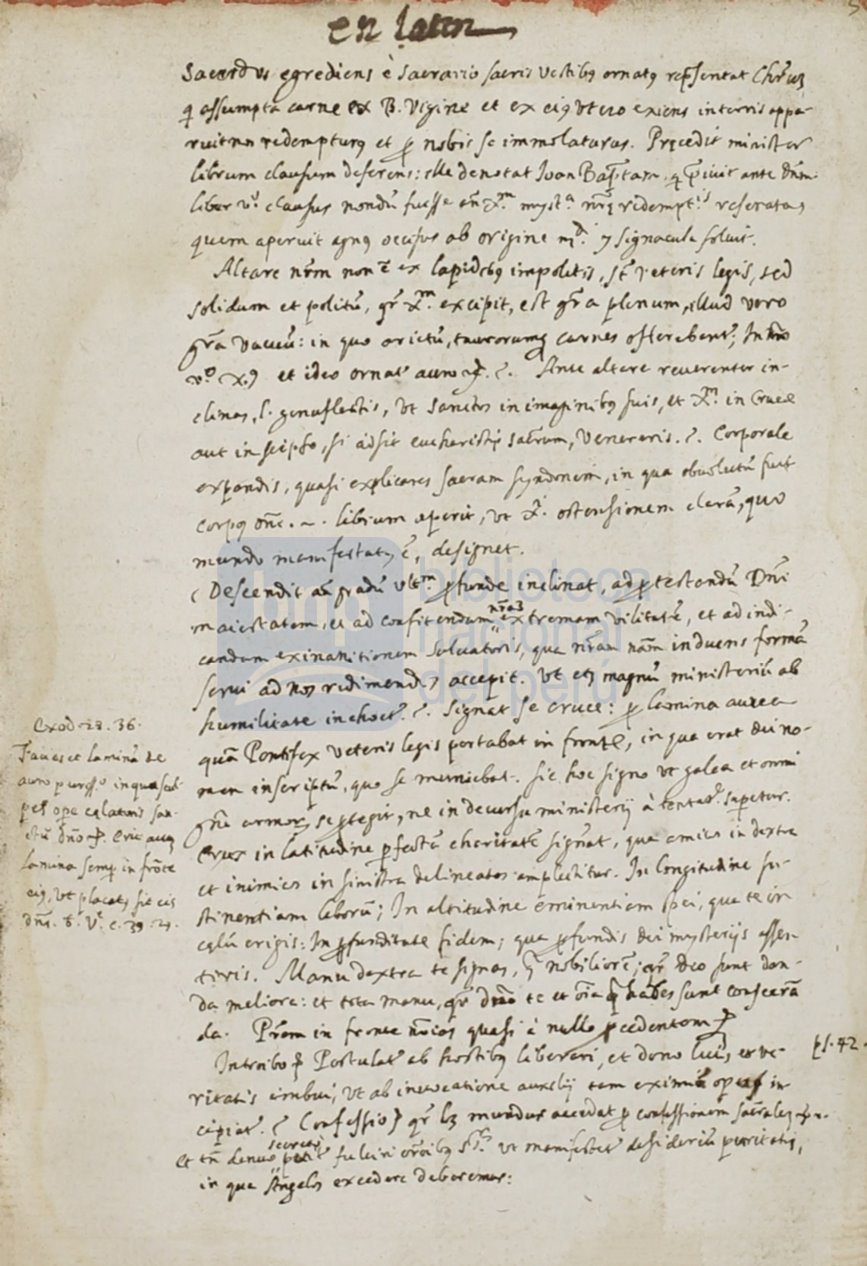 en latin
5
Sacerdos egrediens è Sacrario sacris vestibꝰ ornatꝰ rep̃sentat Chr̃uꝫ
q̃ assumpta carne ex B. Virgine et ex eiꝰ vtero exiens interris appa-
ruit redempturꝰ et ꝓ nobis se immolaturus. Pręcedit minister
librum clausum deferens: ille denotat Ioan Bap̃tam, q̃ p̃iuit ante dñm:
liber vº. clausus nondũ fuisse añ X.ᵐ myst.ᵃ nr̃ę redempt.ⁱˢ reserata
quem aperuit agnꝰ occisus ab origine et signacula soluit.
Altare nr̃m non ex lapidibꝰ impolitis, veteris legis, sed
solidum et politũ, X.ᵐ excipit, est gr̃a plenum, illud vero
gr̃a vacuũ: in quo arietũ, taurorumqꝫ carnes offerebant; In
vº. et ideo ornat Ante altare reuerenter in-
clinas, l. genuflectis, vt Sanctos in imaginibꝰ suis, et X.ᵐ in Cruce
aut in seipso, si adsit eucharistię sacrm, Venereris. Corporale
expandis, quasi explicares sacram syndonem, in qua obuolutũ fuit
corpꝰ librum aperit, vt X.ⁱ ostensionem clarã, quo
mundo manifestatꝰ ẽ, designet.
Descendit añ gradũ vlt.ᵐ ꝓfunde inclinat, ad ꝓtestandũ Dñi
maiestatem, et ad confitendam nr̃aꝫ extremam vilitatẽ, et ad indi-
candam exinanitionem saluatoris, qua nr̃am induens formã
serui ad nos redimendos accepit. Vt magnũ ministeriũ ab
humilitate inchoet. Signat se cruce: ꝓ lamina aurea
quã Pontifex veteris legis portabat in fronte, in qua erat dei no-
men inscriptũ, quo se muniebat. Sic hoc signo vt galea et omni
se ꝓtegit, ne in decursu ministerij à
Crux in latitudine ꝑfectã charitatẽ signat, qua amicos in dextra
et inimicos in sinistra delineatos amplectitur. In longitudine su-
stinentiam laborũ; In altitudine eminentiam spei, qua te in
cęlũ erigis: In ꝓfunditate fidem, qua ꝓfundis dei mysterijs assen-
tiris. Manu dextra te signas, nobilior deo sunt dan-
da meliora: et tota manu, te et habes sunt consecrã
da. Pr̃em in fronte nõias quasi à nullo ꝓcedentem
Introibo Postulat ab hostibꝰ liberari, et dono lucis et ve-
ritatis imbui, vt ab inuocatione auxilij tam eximiũ opus in-
cipiat. Confessio mundus accedat ꝓ confessionem
et denuo secretis petit fulciri vt manifestet desideriũ puritatis,
in qua Angelos excedere deberemus:
Exod. 28. 36.
Facies et laminã de
auro puriss.º in qua scul-
pes ope cęlatoris san-
ctũ dño Erit
lamina semper in frõte
eiꝰ, vt placatꝰ sit eis
dñs. c. 39. 29.
ps. 42.
biblioteca
nacional
del perú